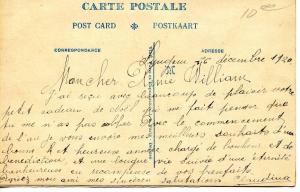 CARTE POSTALE
POST CARD
POSTKAART
CORRESPONDANCE
ADRESSE
décembre 1920
Mon cher William
J'ai reçu avec beaucoup de plaisir votre
petit cadeau de me fait penser que
tu ne m'as pas oublié. Avec le commencement
de l'an je vous envoie mes meilleurs souhaits d'une
bonne et heureuse année chargé de bonheur et de
bénédiction et une longue vie suivie d'une éternité
bienheureuse en récompense de vos bienfaits
mon ami mes sincères salutations